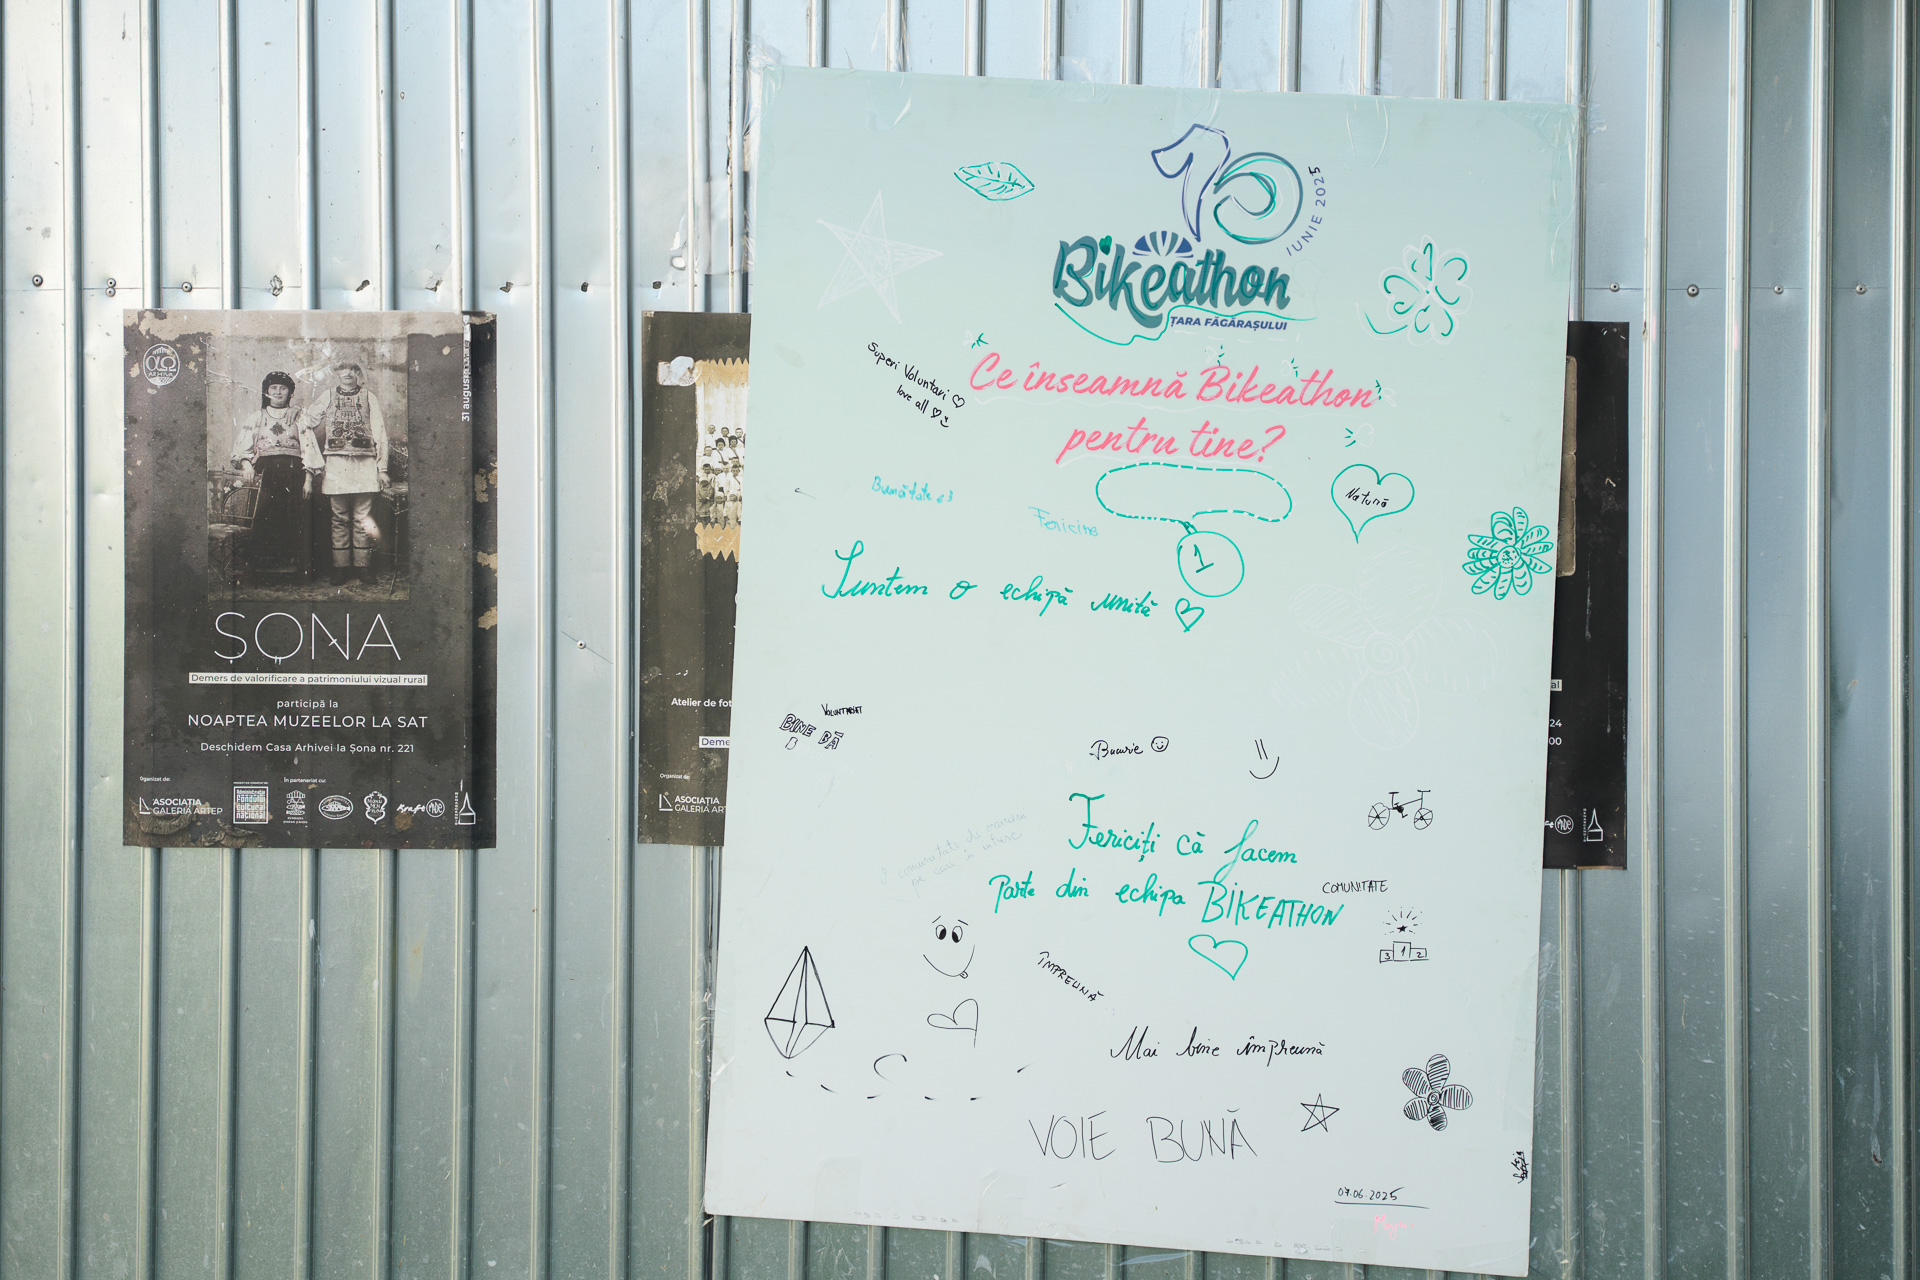 ΑΩ
ARHIVA
31 august
ȘONA
Demers de valorificare a patrimoniului vizual rural
participă la
NOAPTEA MUZEELOR LA SAT
Deschidem Casa Arhivei la Șona nr. 221
Organizat de:
În parteneriat cu:
ASOCIAȚIA
GALERIA ARTEP
Administrația
Fondului
Cultural
Național
Kraft
MADE
Atelier de fot
Deme
Organizat de:
ASOCIAȚIA
GALERIA ART
10
IUNIE 2025
Bikeathon
ȚARA FĂGĂRAȘULUI
Ce înseamnă Bikeathon
pentru tine?
Superi Voluntari ♡
love all ♡
Bunătate <3
Fericire
Natură
1
Suntem o echipă unită ♡
VOLUNTARIAT
BINE BĂ
Bucurie ☺
Fericiți că facem
Parte din echipa BIKEATHON
COMUNITATE
3 1 2
ÎMPREUNĂ
Mai bine împreună
VOIE BUNĂ
07.06.2025
al
24
00